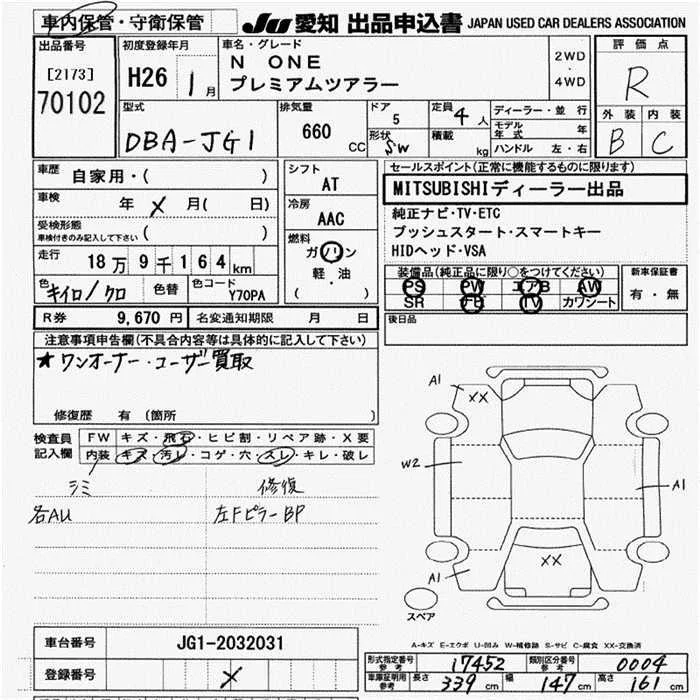 車内保管・守衛保管
JU 愛知 出品申込書 JAPAN USED CAR DEALERS ASSOCIATION
出品番号
[2173]
70102
初度登録年月
H26 1月
車名・グレード
N ONE
プレミアムツアラー
2WD
・
4WD
評価点
R
外装 内装
B C
型式
DBA-JG1
排気量
660 CC
ドア
5
形状
SW
定員 4人
積載 kg
ディーラー・並行
モデル年式 年
ハンドル 左・右
車歴
自家用・( )
車検
年 メ 月( 日)
受検形態
車検付きのみ記入して下さい ( )
走行
18万9千164km
色
キイロ/クロ
色替
色コード
Y70PA
シフト
AT
冷房
AAC
燃料
ガソリン
軽・油
( )
セールスポイント(正常に機能するものに限ります)
MITSUBISHIディーラー出品
純正ナビ・TV・ETC
プッシュスタート・スマートキー
HIDヘッド・VSA
装備品(純正品に限り○をつけてください)
PS PW エアB AW
SR TV カワシート
新車保証書
有・無
R券 9,670円 名変通知期限 月 日
後日品
注意事項申告欄(不具合内容等は具体的に記入して下さい)
★ワンオーナー・ユーザー買取
修復歴 有 (箇所 )
検査員
記入欄
FW キズ・飛石・ヒビ割・リペア跡・X要
内装 キズ・汚レ・コゲ・穴・スレ・キレ・破レ
シミ 修復
各AU 左FピラーBP
A1
XX
W2
A1
XX
A1
スペア
A-キズ E-エクボ U-凹み W-補修跡 S-サビ C-腐食 XX-交換済
車台番号 JG1-2032031
登録番号 メ
形式指定番号
参考
17452
類別区分番号
参考
0004
車庫証明用
参考
長さ 339 cm 幅 147 cm 高さ 161 cm